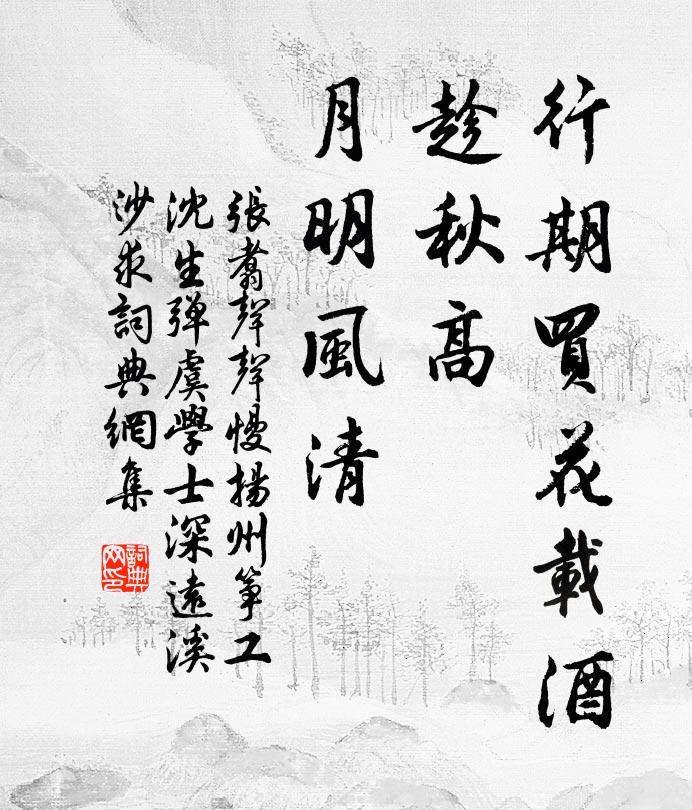 行期買花載酒
趁秋高
月明風清
張翥聲聲慢揚州箏工
沈生彈虞學士深遠溪
沙求詞典網集
詞典網印